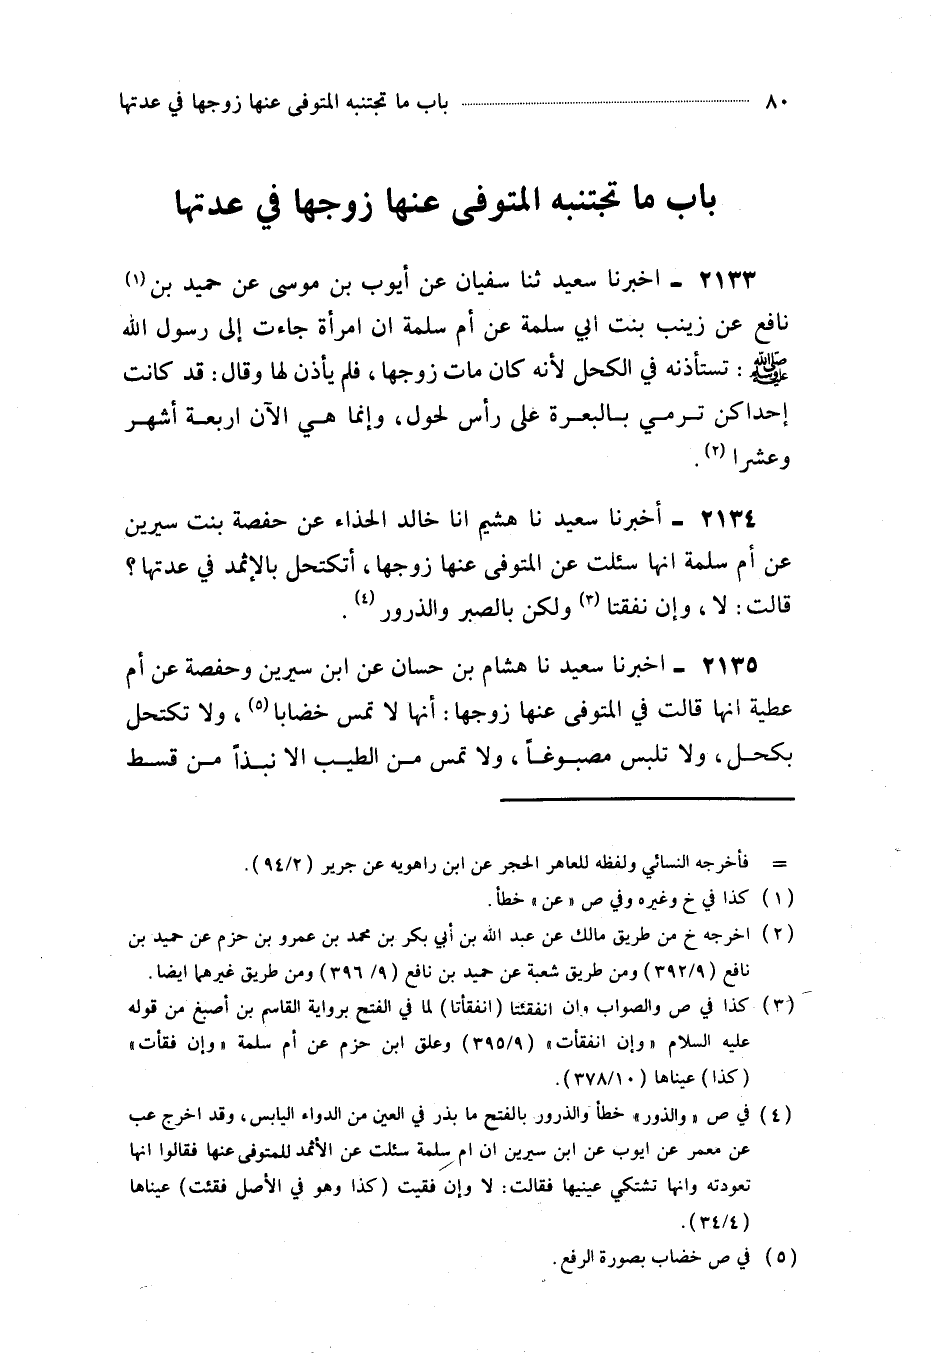 ٨٠ ........ باب ما تجتنبه المتوفى عنها زوجها في عدتها
باب ما تجتنبه المتوفى عنها زوجها في عدتها
٢١٣٣ ـ اخبرنا سعيد ثنا سفيان عن أيوب بن موسى عن حميد بن (١)
نافع عن زينب بنت ابي سلمة عن أم سلمة ان امرأة جاءت إلى رسول الله
ﷺ : تستأذنه في الكحل لأنه كان مات زوجها، فلم يأذن لها وقال: قد كانت
إحداكن ترمي بالبعرة على رأس لحول، وإنما هي الآن اربعة أشهر
وعشرا (٢).
٢١٣٤ ـ أخبرنا سعيد نا هشيم انا خالد الحذاء عن حفصة بنت سيرين
عن أم سلمة انها سئلت عن المتوفى عنها زوجها، أتكتحل بالإثمد في عدتها؟
قالت: لا، وإن نفقتا (٣) ولكن بالصبر والذرور (٤).
٢١٣٥ ـ اخبرنا سعيد نا هشام بن حسان عن ابن سيرين وحفصة عن أم
عطية انها قالت في المتوفى عنها زوجها: أنها لا تمس خضابا(٥)، ولا تكتحل
بكحل، ولا تلبس مصبوغاً، ولا تمس من الطيب الا نبذاً من قسط
= فأخرجه النسائي ولفظه للعاهر الحجر عن ابن راهويه عن جرير (٩٤/٢).
(١) كذا في خ وغيره وفي ص «عن» خطأ.
(٢) اخرجه خ من طريق مالك عن عبد الله بن أبي بكر بن محمد بن عمرو بن حزم عن حميد بن
نافع (٣٩٢/٩) ومن طريق شعبة عن حميد بن نافع (٣٩٦/٩) ومن طريق غيرهما ايضا.
(٣) كذا في ص والصواب وان انفقئتا (انفقأتا) لما في الفتح برواية القاسم بن أصبغ من قوله
عليه السلام «وإن انفقأت» (٣٩٥/٩) وعلق ابن حزم عن أم سلمة «وإن فقأت»
(كذا) عيناها (٣٧٨/١٠).
(٤) في ص «والذور» خطأ والذرور بالفتح ما يذر في العين من الدواء اليابس، وقد اخرج عب
عن معمر عن ايوب عن ابن سيرين ان ام سلمة سئلت عن الأثمد للمتوفى عنها فقالوا انها
تعودته وانها تشتكي عينيها فقالت: لا وإن فقيت (كذا وهو في الأصل فقئت) عيناها
(٣٤/٤).
(٥) في ص خضاب بصورة الرفع.